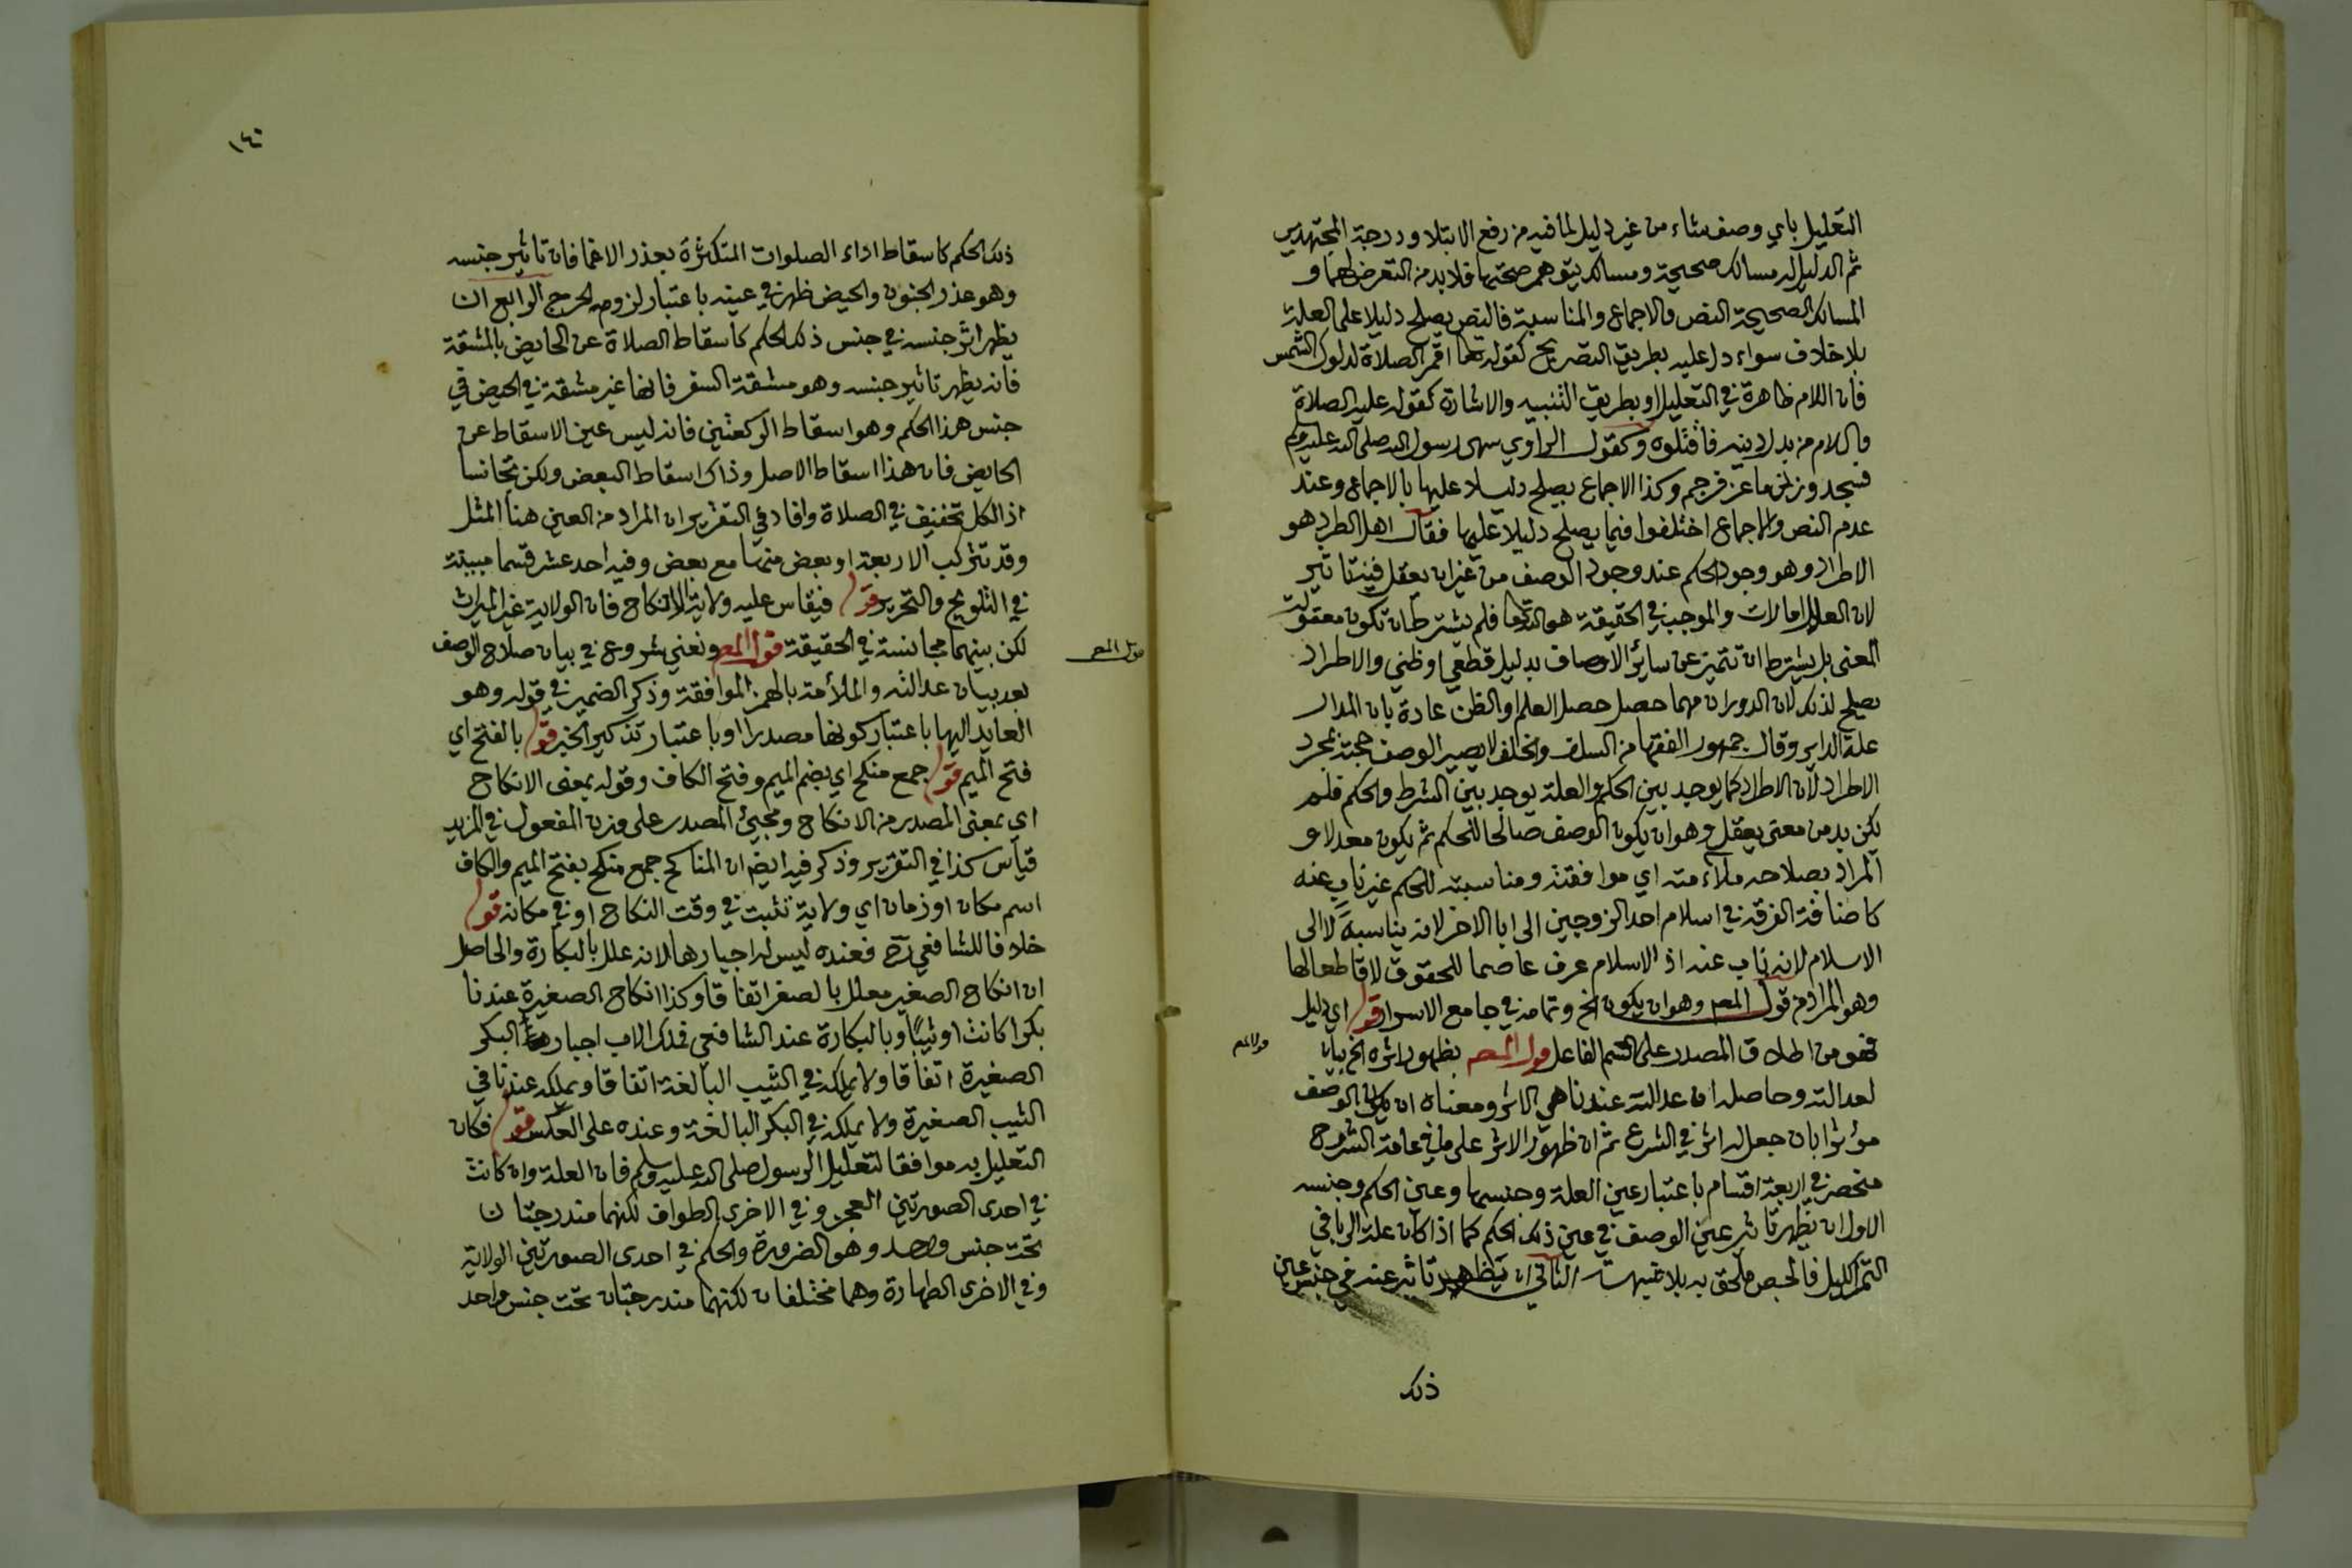 التعليل باي وصف شاء من غير دليل لما فيه من رفع الابتلا ودرجة المجتهدين
ثم الدليل له مسالك صحيحة ومسالك يتوهم صحتها فلا بد من التعرض لهما و
المسالك الصحيحة النص والاجماع والمناسبة فالنص يصلح دليلا على العلة
بلا خلاف سواء دل عليه بطريق التصريح كقوله تعا اقم الصلاة لدلوك الشمس
فان اللام ظاهرة في التعليل او بطريق التنبيه والاشارة كقوله عليه الصلاة
والسلام من بدل دينه فاقتلوه وكقول الراوي سهى رسول الله صلى الله عليه وسلم
فسجد وزنى ماعز فرجم وكذا الاجماع يصلح دليلا عليها بالاجماع وعند
عدم النص والاجماع اختلفوا فيما يصلح دليلا عليها فقال اهل الطرد هو
الاطراد وهو وجود الحكم عند وجود الوصف من غير ان يعقل فيه تاثير
لان العلل امارات والموجب في الحقيقة هو الله تعا فلم يشترط ان تكون معقولة
المعنى بل يشترط ان تتميز عن سائر الاوصاف بدليل قطعي او ظني والاطراد
يصلح لذلك لان الدوران مهما حصل حصل العلم او الظن عادة بان المدار
علة الداير وقال جمهور الفقها من السلف والخلف لا يصير الوصف حجة بمجرد
الاطراد لان الاطراد كما يوجد بين الحكم والعلة يوجد بين الشرط والحكم فلم
يكن بد من معنى يعقل وهو ان يكون الوصف صالحا للحكم ثم يكون معدلا و
المراد بصلاحه ملاءمته اي موافقته ومناسبته للحكم غير ناب عنه
كاضافة الفرقة في اسلام احد الزوجين الى ابا الاخر لانه يناسبه لا الى
الاسلام لانه ناب عنه اذ الاسلام عرف عاصما للحقوق لا قاطعا لها
وهو المراد من قول المص وهو ان يكون الخ وتمامه في جامع الاسرار قوله اي دليل
فهو من اطلاق المصدر على اسم الفاعل قول المص بظهور اثره الخ بيان
قول المص
لعدالته وحاصله ان عدالته عندنا هي الاثر ومعناه ان يكون الوصف
مؤثرا بان جعل له اثر في الشرع ثم ان ظهور الاثر على ما في عامة الشروح
منحصر في اربعة اقسام باعتبار عين العلة وجنسها وعين الحكم وجنسه
الاول ان يظهر تاثير عين الوصف في عين ذلك الحكم كما اذا كان علة الربا في
التمر الكيل فالجص ملحق به بلا شبهة الثاني ان يظهر تاثير عينه في جنس عين
ذلك
١٤٠
ذلك الحكم كاسقاط اداء الصلوات المتكثرة بعذر الاغما فان تاثير جنسه
وهو عذر الجنون والحيض ظهر في عينه باعتبار لزوم الحرج الرابع ان
يظهر اثر جنسه في جنس ذلك الحكم كاسقاط الصلاة عن الحايض بالمشقة
فانه يظهر تاثير جنسه وهو مشقة السفر فانها غير مشقة في الحيض في
جنس هذا الحكم وهو اسقاط الركعتين فانه ليس عين الاسقاط عن
الحايض فان هذا اسقاط الاصل وذاك اسقاط البعض ولكن تجانسا
اذ الكل تخفيف في الصلاة وافاد في التقرير ان المراد من العين هنا المثل
وقد تتركب الاربعة او بعض منها مع بعض وفيه احد عشر قسما مبينة
في التلويح والتحرير قوله فيقاس عليه ولاية الانكاح فان الولاية غير الميراث
لكن بينهما مجانسة في الحقيقة قول المص ونعني شروع في بيان صلاح الوصف
قول المص
بعد بيان عدالته والملأمة بالهمز الموافقة وذكر الضمير في قوله وهو
العايد اليها باعتبار كونها مصدرا او باعتبار تذكير الخبر قوله بالفتح اي
فتح الميم قوله جمع منكح اي بضم الميم وفتح الكاف وقوله بمعنى الانكاح
اي بمعنى المصدر من الانكاح ومجيئ المصدر على وزن المفعول في المزيد
قياس كذا في التقرير وذكر فيه ايضا ان المناكح جمع منكح بفتح الميم والكاف
اسم مكان او زمان اي ولاية تثبت في وقت النكاح او في مكانه قوله
خلافا للشافعي رح فعنده ليس له اجبارها لانه علل بالبكارة والحاصل
ان انكاح الصغير معلل بالصغر اتفاقا وكذا انكاح الصغيرة عندنا
بكرا كانت او ثيبًا وبالبكارة عند الشافعي فملك الاب اجبار البكر
الصغيرة اتفاقا ولا يملكه في الثيب البالغة اتفاقا ويملكه عندنا في
الثيب الصغيرة ولا يملكه في البكر البالغة وعنده على العكس قوله فكان
التعليل به موافقا لتعليل الرسول صلى الله عليه وسلم فان العلة وان كانت
في احدى الصورتين العجز وفي الاخرى الطواف لكنهما مندرجتان
تحت جنس واحد وهو الضرورة والحكم في احدى الصورتين الولاية
وفي الاخرى الطهارة وهما مختلفان لكنهما مندرجتان تحت جنس واحد